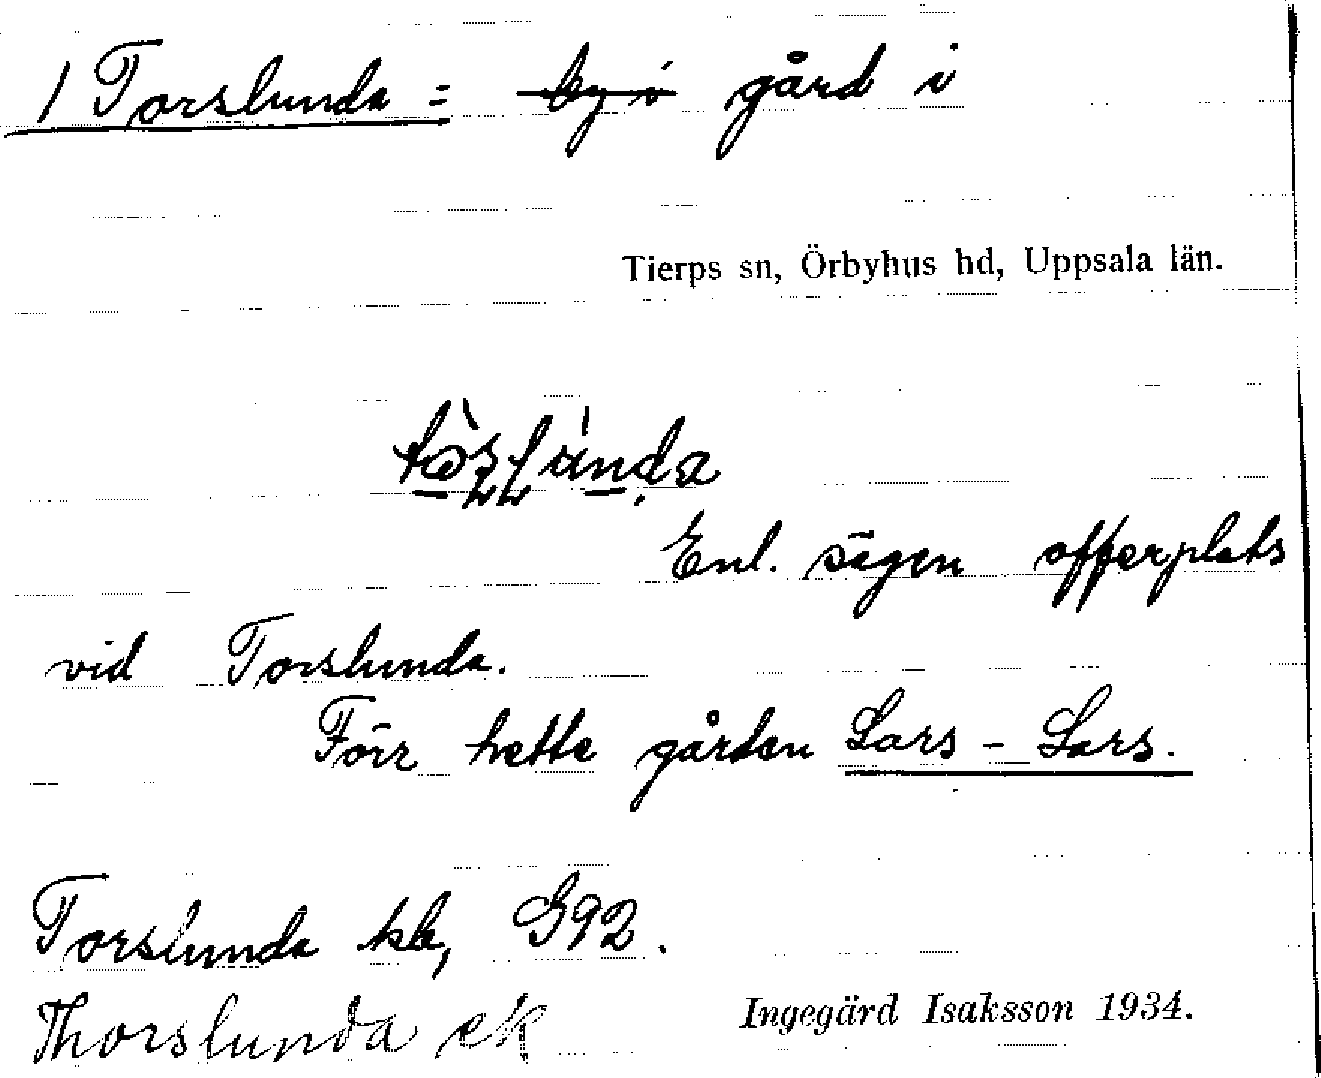 1 Torslunda = by i gård i
Tierps sn, Örbyhus hd, Uppsala län.
Enl. sägen offerplats
vid Torslunda.
Förr hette gården Lars - Lars.
Torslunda kb, G92.
Thorslunda ek
Ingegärd Isaksson 1934.